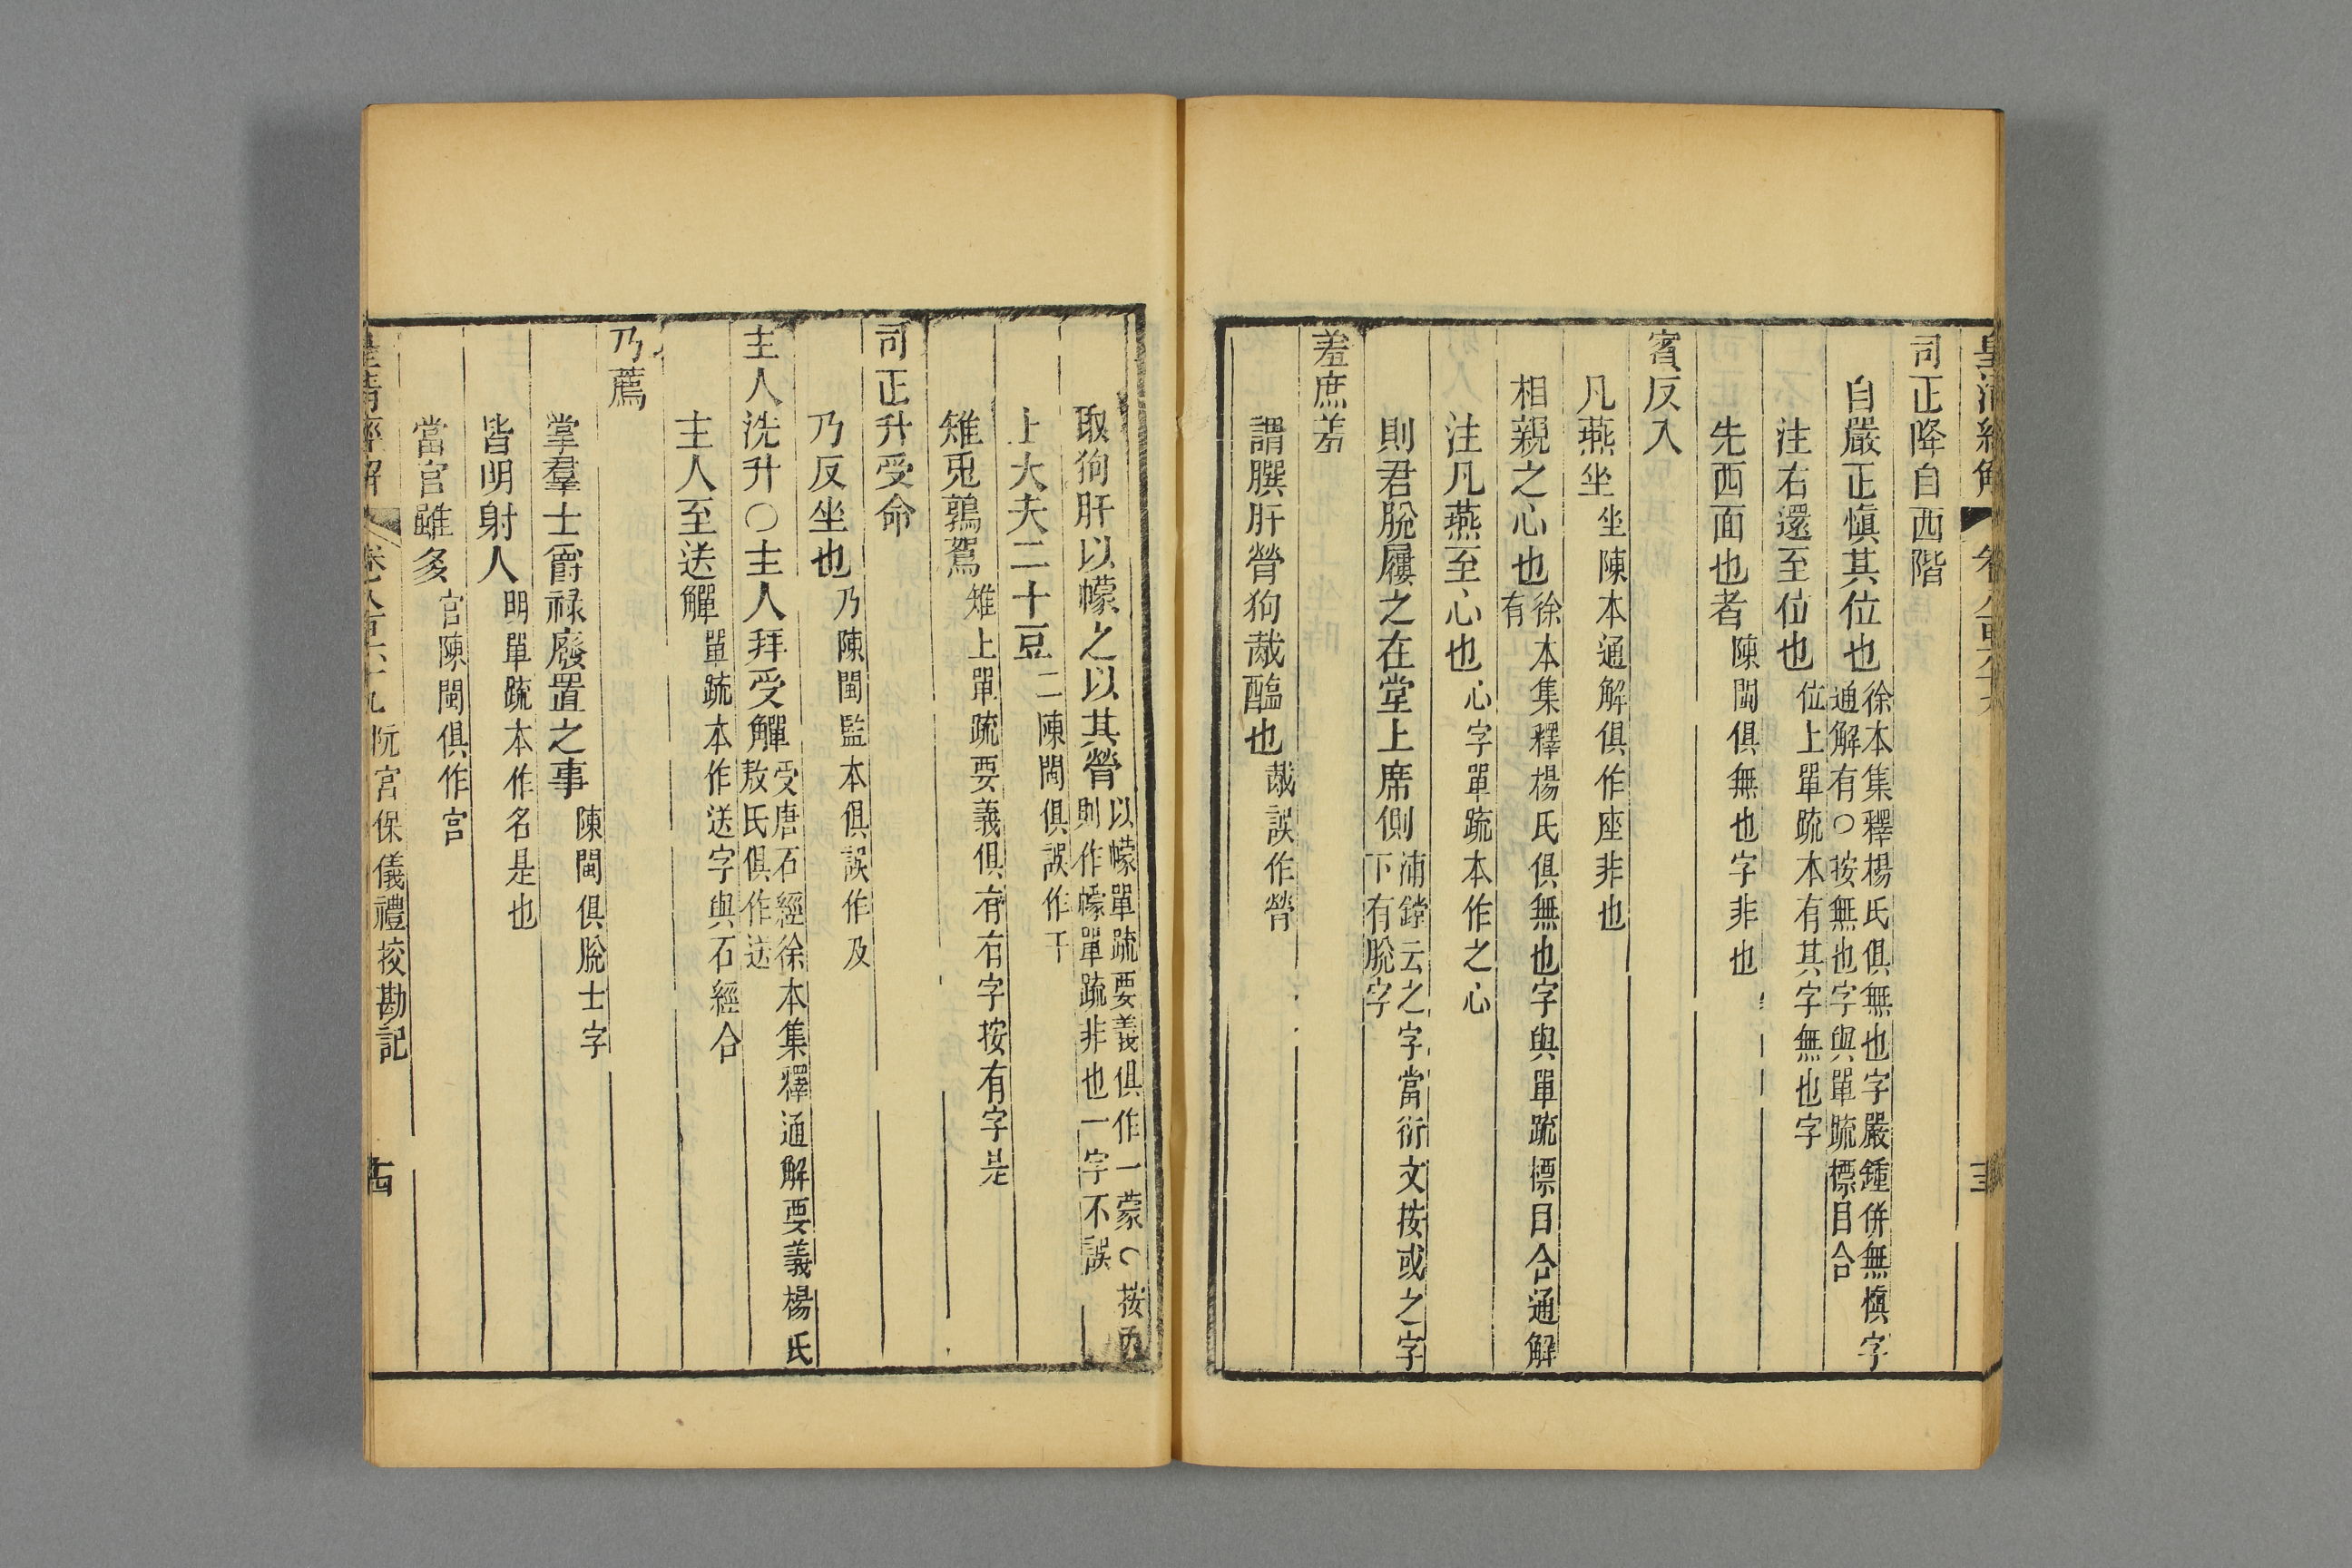 司正降自西階
自嚴正愼其位也徐本集釋楊氏俱無也字嚴鍾併無愼字
通解有○按無也字與單疏標目合
注右還至位也位上單疏本有其字無也字
先西面也者陳閩俱無也字非也
賓反入
凡燕坐坐陳本通解俱作座非也
相親之心也徐本集釋楊氏俱無也字與單疏標目合通解
有
注凡燕至心也心字單疏本作之心
則君脫屨之在堂上席側浦鏜云之字當衍文按或之字
下有脫字
羞庶羞
謂䐑肝膋狗胾醢也胾誤作膋
取狗肝以幪之以其膋以幪單疏要義俱作一蒙○按
則作幪單疏非也一字不誤
上大夫二十豆二陳閩俱誤作干
雉兎鶉鴽雉上單疏要義俱有有字按有字是
司正升受命
乃反坐也乃陳閩監本俱誤作及
主人洗升○主人拜受觶受唐石經徐本集釋通解要義楊氏
敖氏俱作送
主人至送觶單疏本作送字與石經合
乃薦
掌羣士爵祿廢置之事陳閩俱脫士字
皆明射人明單疏本作名是也
當官雖多官陳閩俱作宫
皇清經解 卷八百六十九 阮宮保儀禮挍勘記 十四